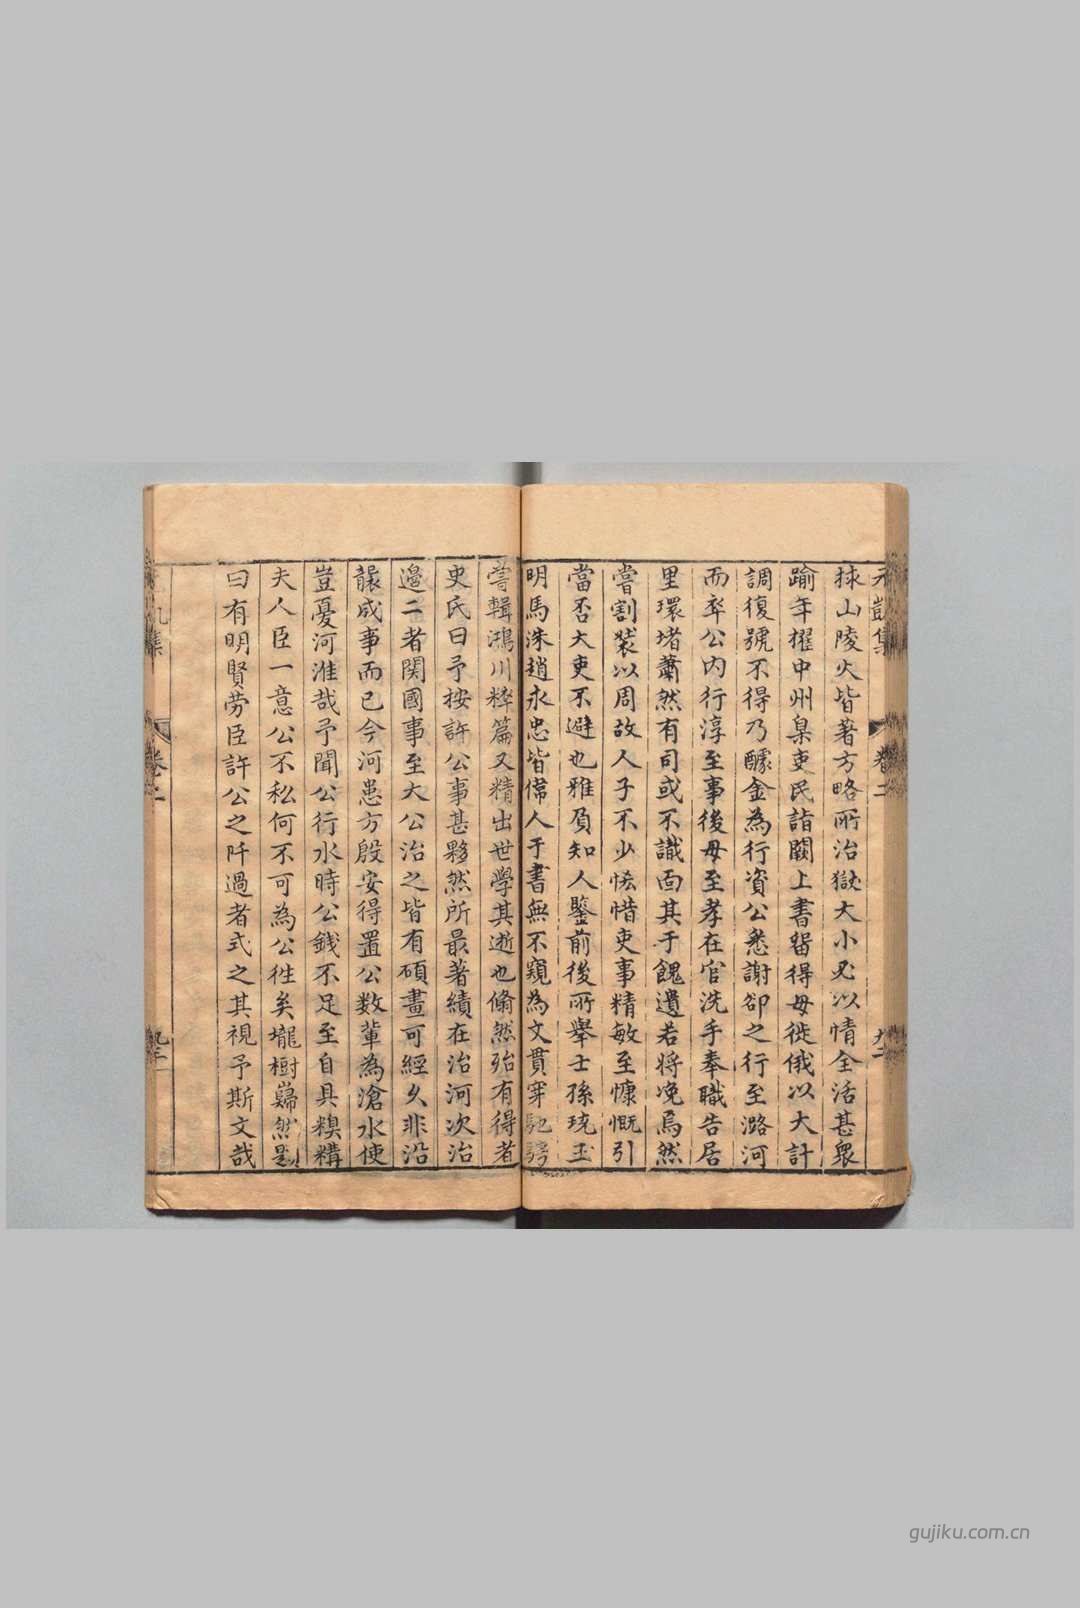 捄山陵火皆著方略所治獄大小必以情全活甚衆
踰年擢中州臬吏民詣闕上書畱得毋徙俄以大計
調復號不得乃醵金為行資公悉謝卻之行至潞河
而卒公內行淳至事後母至孝在官洗手奉職告居
里環堵蕭然有司或不識面其于餽遺若將浼焉然
嘗割裝以周故人子不少恡惜吏事精敏至慷慨引
當否大吏不避也雅負知人鑒前後所舉士孫珫玉
明馬洙趙永忠皆偉人于書無不窺為文貫穿馳騁
嘗輯鴻川粹篇又精出世學其逝也翛然殆有得者
史氏曰予按許公事甚夥然所最著績在治河次治
邊二者関國事至大公治之皆有碩畫可經久非沿
襲成事而已今河患方殷安得置公數輩為滄水使
豈憂河淮哉予聞公行水時公錢不足至自具糗糒
夫人臣一意公不私何不可為公徃矣壠樹巋然題
曰有明賢勞臣許公之阡過者式之其視予斯文哉
卷二